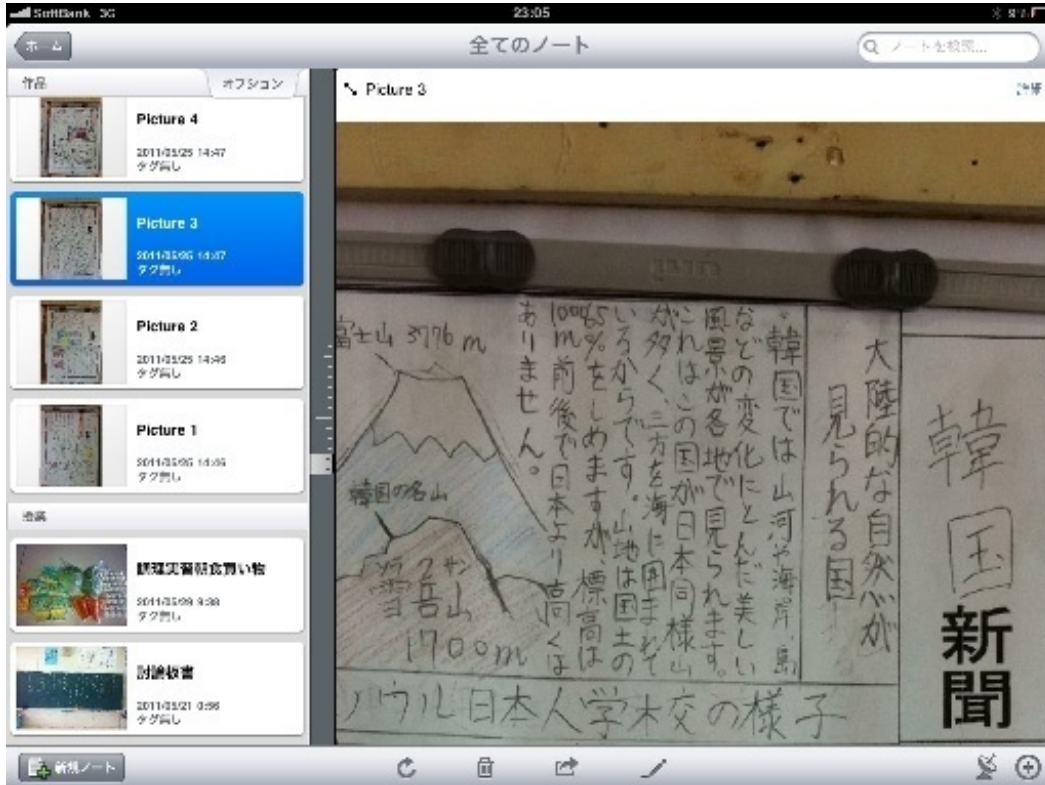 SoftBank 3G
23:05
ホーム
全てのノート
ノートを検索...
作品
オプション
Picture 4
2011/05/25 14:47
タグ無し
Picture 3
2011/05/25 14:47
タグ無し
Picture 2
2011/05/25 14:46
タグ無し
Picture 1
2011/05/25 14:46
タグ無し
授業
調理実習朝食買い物
2011/05/29 9:38
タグ無し
討論板書
2011/05/21 0:56
タグ無し
新規ノート
Picture 3
詳細
韓国新聞
大陸的な自然が
見られる国
韓国では山河や海岸、島
などの変化にとんだ美しい
風景が各地で見られます。
これはこの国が日本同様山
が多く、三方を海に囲まれて
いるからです。山地は国土の
65%をしめますが、標高は
1000m前後で日本より高くは
ありません。
富士山 3776m
韓国の名山
雪岳山
1700m
ソウル日本人学校の様子